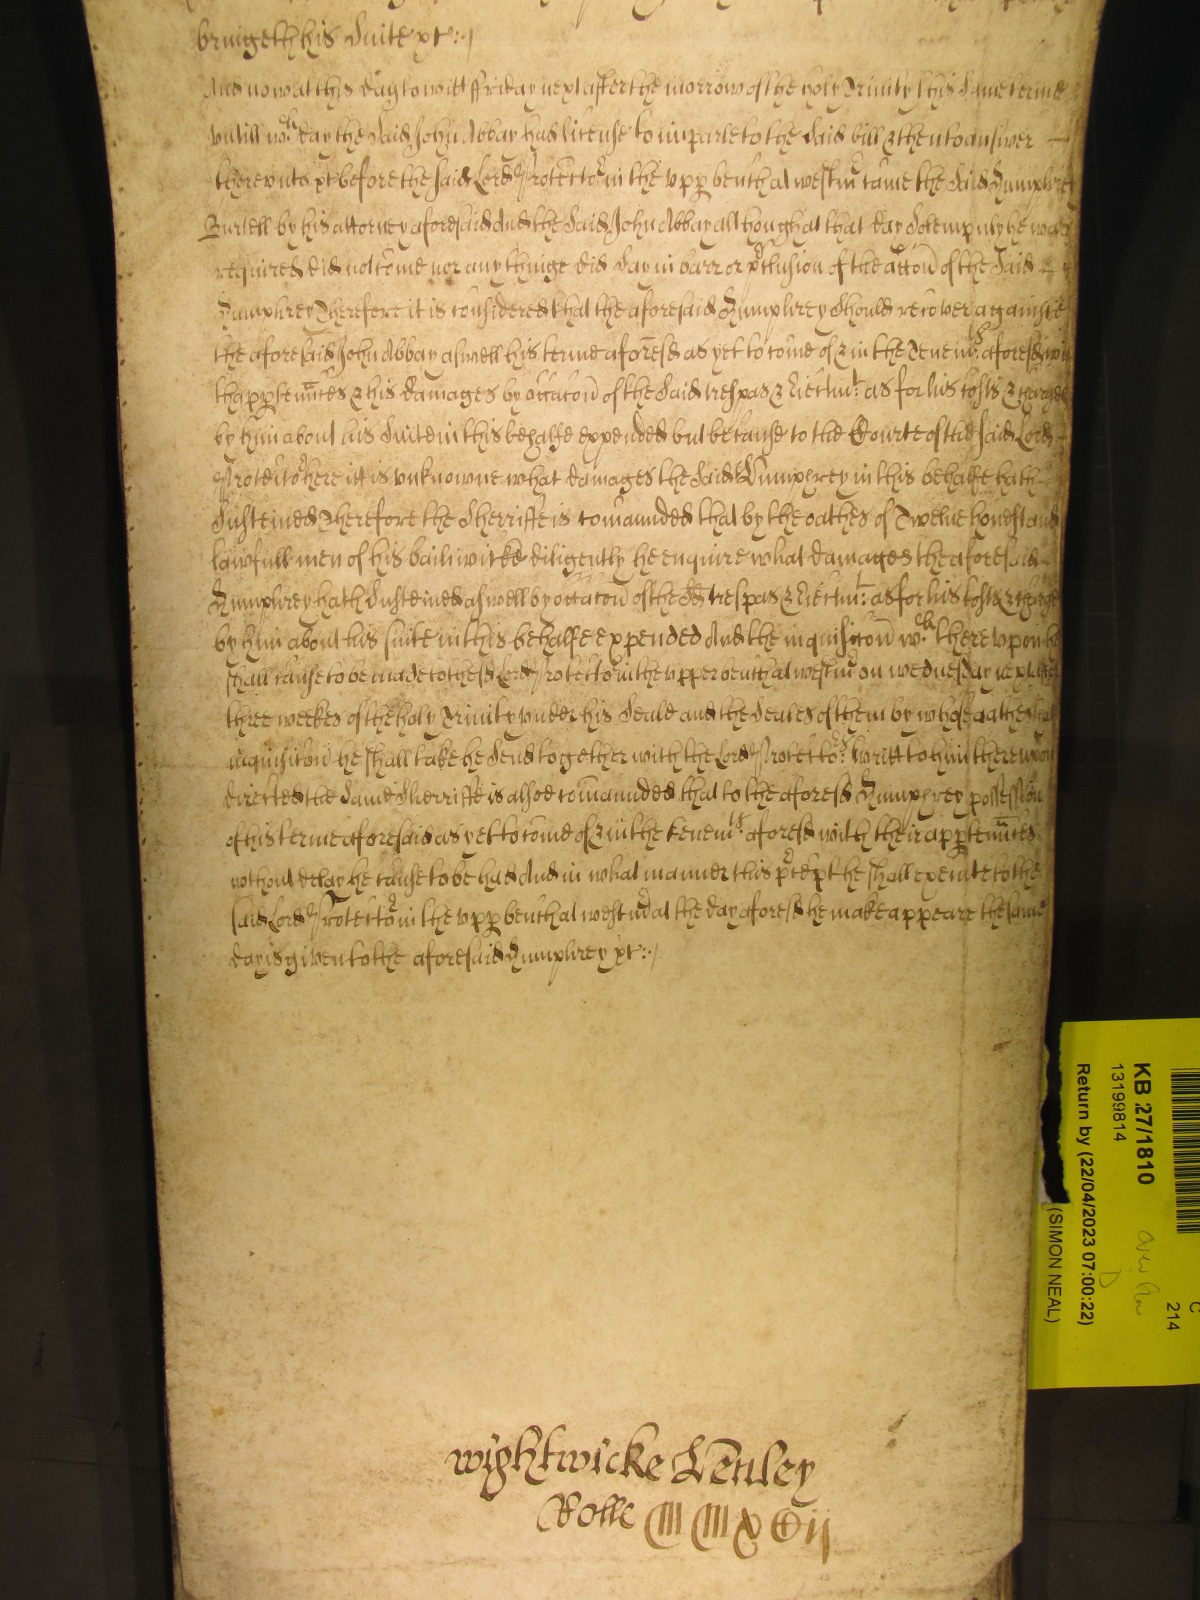 bringeth his suite &c:
And now at this day to witt ffriday next after the morrow of the holy Trinity this same terme
untill wch day the said John Abbay has license to imparle to the said bill & then to answer
thereunto &c before the said Lord Protector in the upp bench at westmr came the said Humphrey
Burtell by his attorney aforesaid And the said John Abbay although at that day solempnly he was
required did not come nor any thinge did say in barr or preclusion of the accon of the said
Humphrey Therefore it is considered that the aforesaid Humphrey should recover against
the aforesaid John Abbay aswell his terme aforesd as yet to come of & in the Tenemts aforesd
thappurtennces & his damages by occacon of the said trespas & Eiectmt as for his costs & charges
by him about his suite in this behalfe expended but because to the Courte of the said Lord
Protector here itt is unknowne what damages the said Humphrey in this behalfe hath
susteined Therefore the Sherriffe is comaunded that by the oathes of Twelve honest and
lawfull men of his bailiwicke diligently he enquire what damages the aforesaid
Humphrey hath susteined aswell by occacon of the sd trespas & Eiectmt as for his costs & charges
by him about his suite in this behalfe expended And the inquisicon wch thereupon he
shall cause to be made to the sd Lord Protector in the upper bench at westmr on wednesday next after
three weekes of the holy Trinity under his seale and the seales of them by whose oathes that
inquisicon he shall take he send together with the Lord Protectors writt to him thereupon
directed the same Sherriffe is alsoe comaunded that to the aforesd Humphrey possession
of his terme aforesaid as yet to come of & in the tenemts aforesd with their appurtennces
without delay he cause to be had And in what manner this precpt he shall execute to the
said Lord Protector in the upp bench at westmr at the day aforesd he make appeare the same
day is given to the aforesaid Humphrey &c:
KB 27/1810
13199814
Return by (22/04/2023 07:00:22)
(SIMON NEAL)
C
214
wightwicke
Rolle